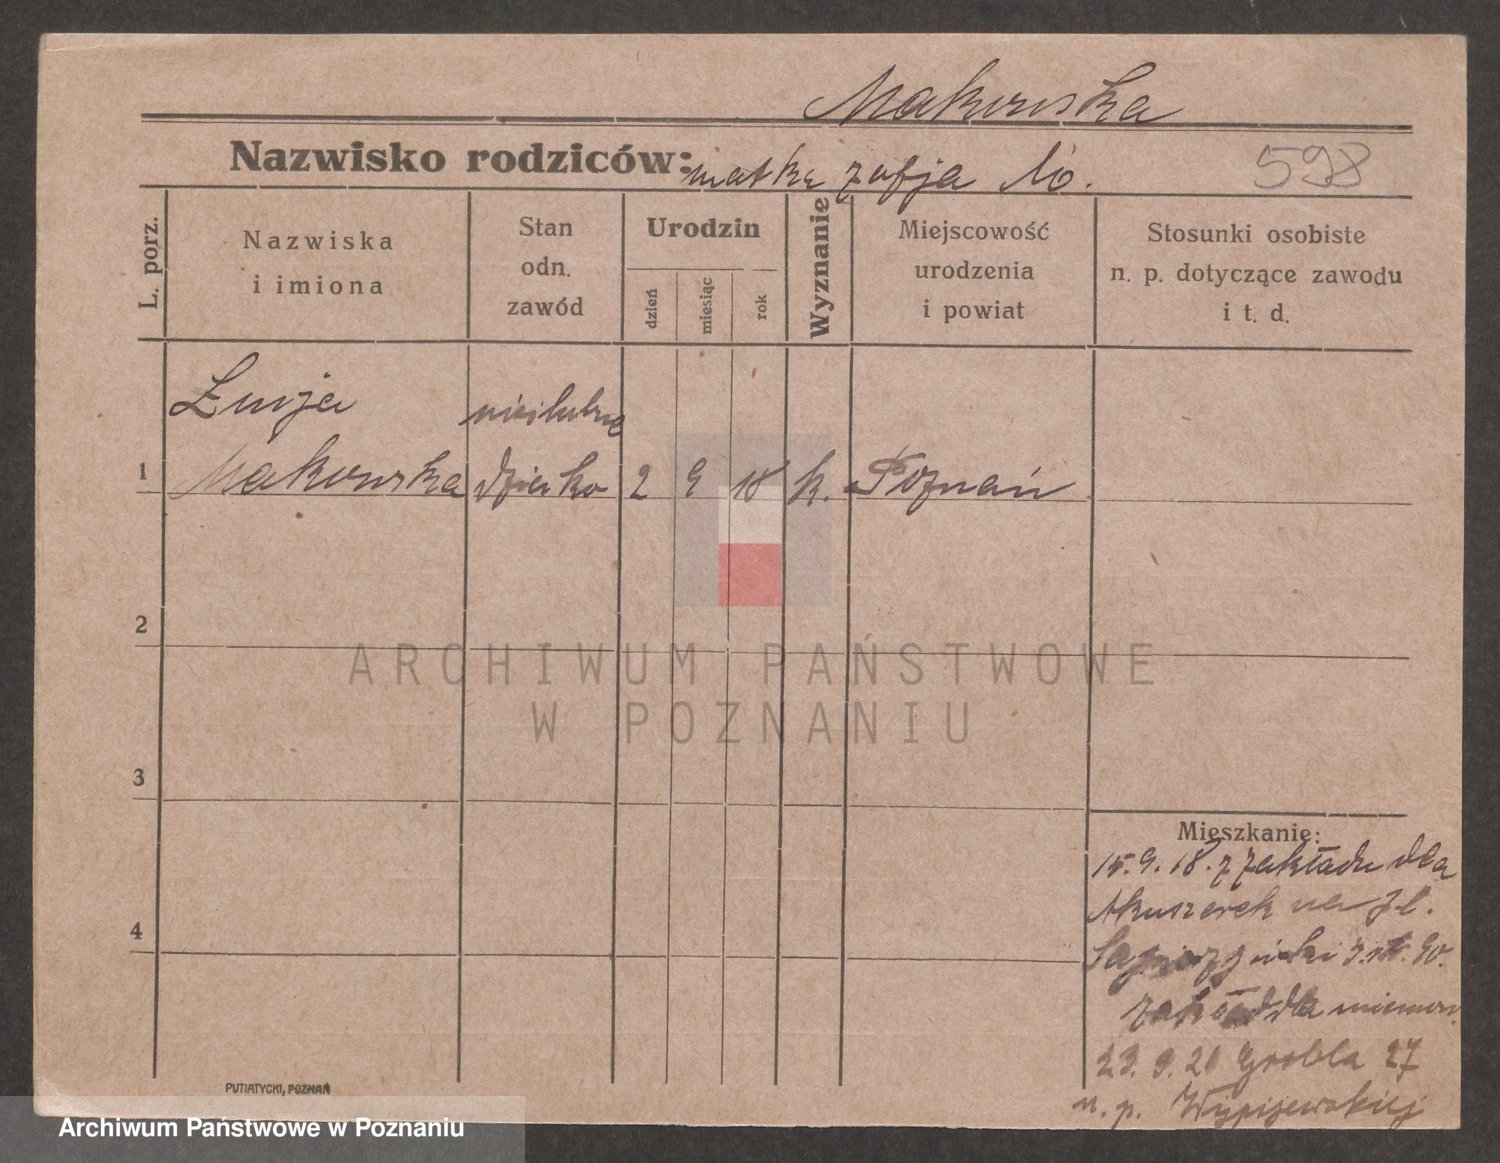 Makowska
Nazwisko rodziców: matka Zofja M.
598
L. porz.
Nazwiska
i imiona
Stan
odn.
zawód
Urodzin
dzień
miesiąc
rok
Wyznanie
Miejscowość
urodzenia
i powiat
Stosunki osobiste
n. p. dotyczące zawodu
i t. d.
nieślubne
1
Makowska dziecko 2 9 18 k. Poznań
2
ARCHIWUM PAŃSTWOWE
W POZNANIU
3
4
Mieszkanie:
15.9.18. z zakładu dla
Akuszerek na pl.
zakład dla
23.9.20 Grobla 27
u. p.
PUTIATYCKI, POZNAŃ
Archiwum Państwowe w Poznaniu